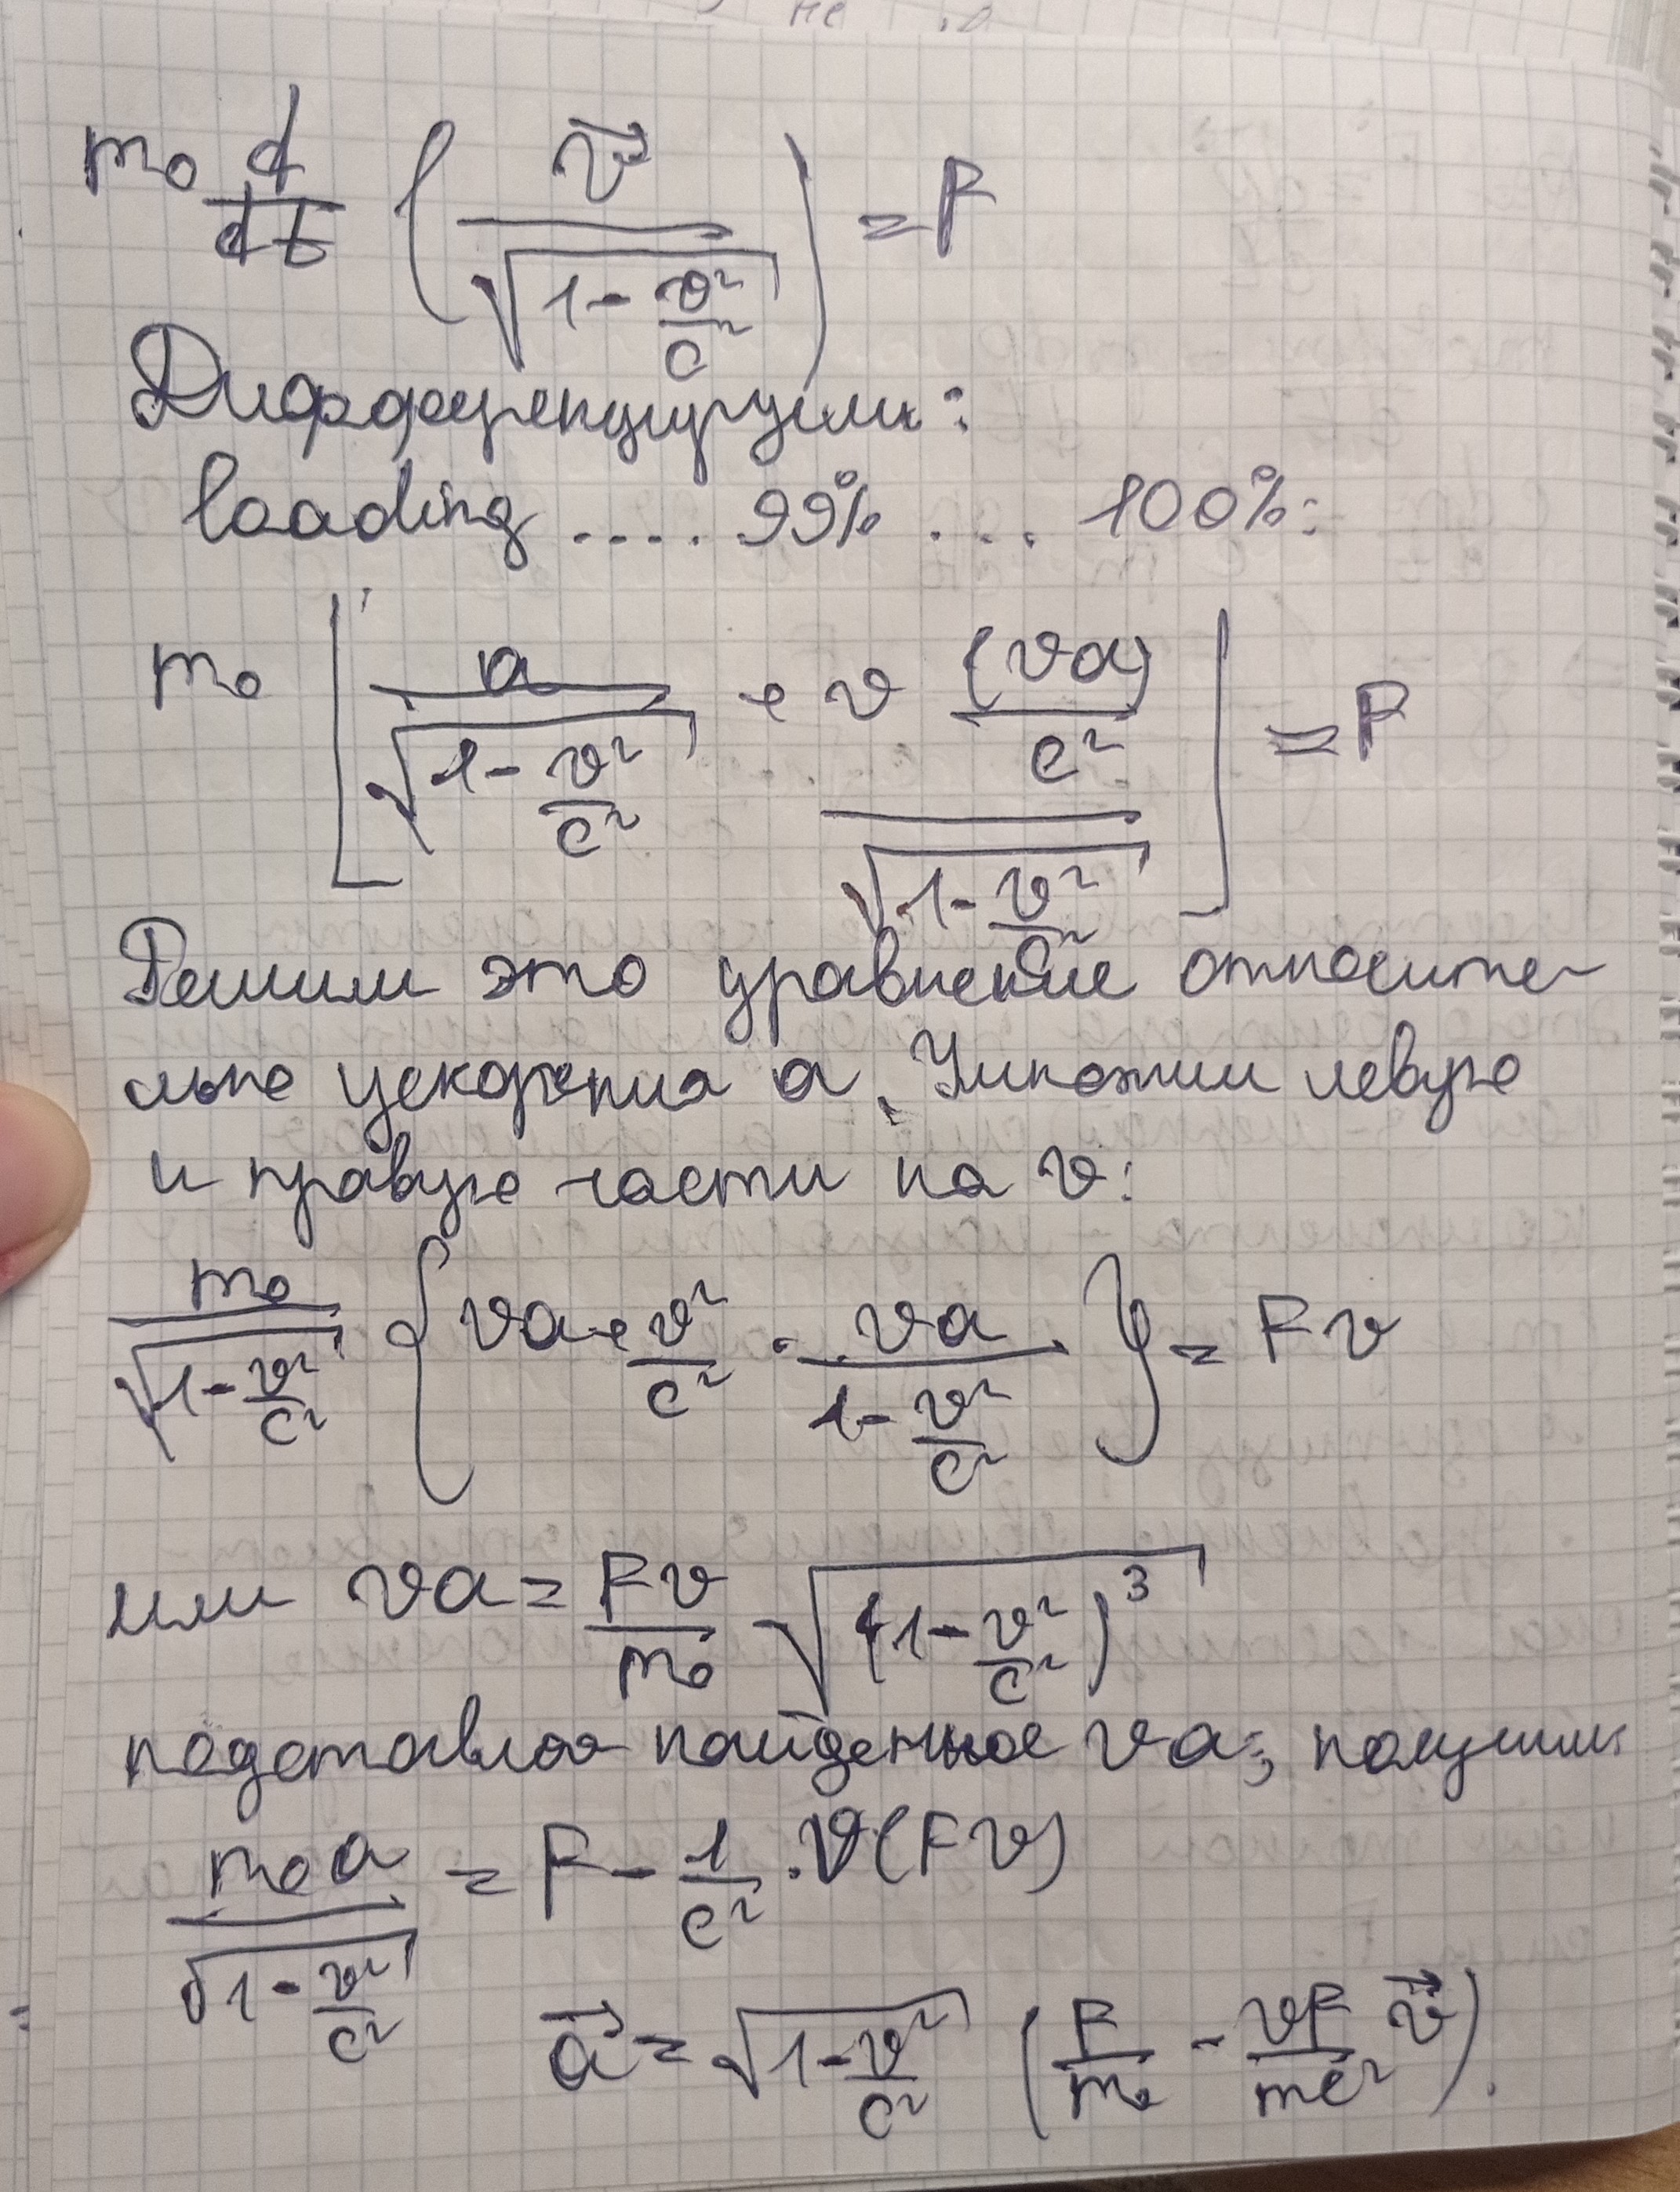 m₀ d/dt ( v⃗ / √(1 - v²/c²) ) = F
Дифференцируем:
loading .... 99% ... 100%:
m₀ [ a / √(1 - v²/c²) + v (va)/c² / √(1 - v²/c²) ] = F
Решим это уравнение относите-
льно ускорения a. Умножим левую
и правую части на v:
m₀ / √(1 - v²/c²) { va + v²/c² · va / (1 - v²/c²) } = Fv
или va = Fv/m₀ √(1 - v²/c²)³
подставляя найденное va, получим:
m₀a / √(1 - v²/c²) = F - 1/c² · v(Fv)
a⃗ = √(1 - v²/c²) ( F/m₀ - vF/mc² v⃗ ).